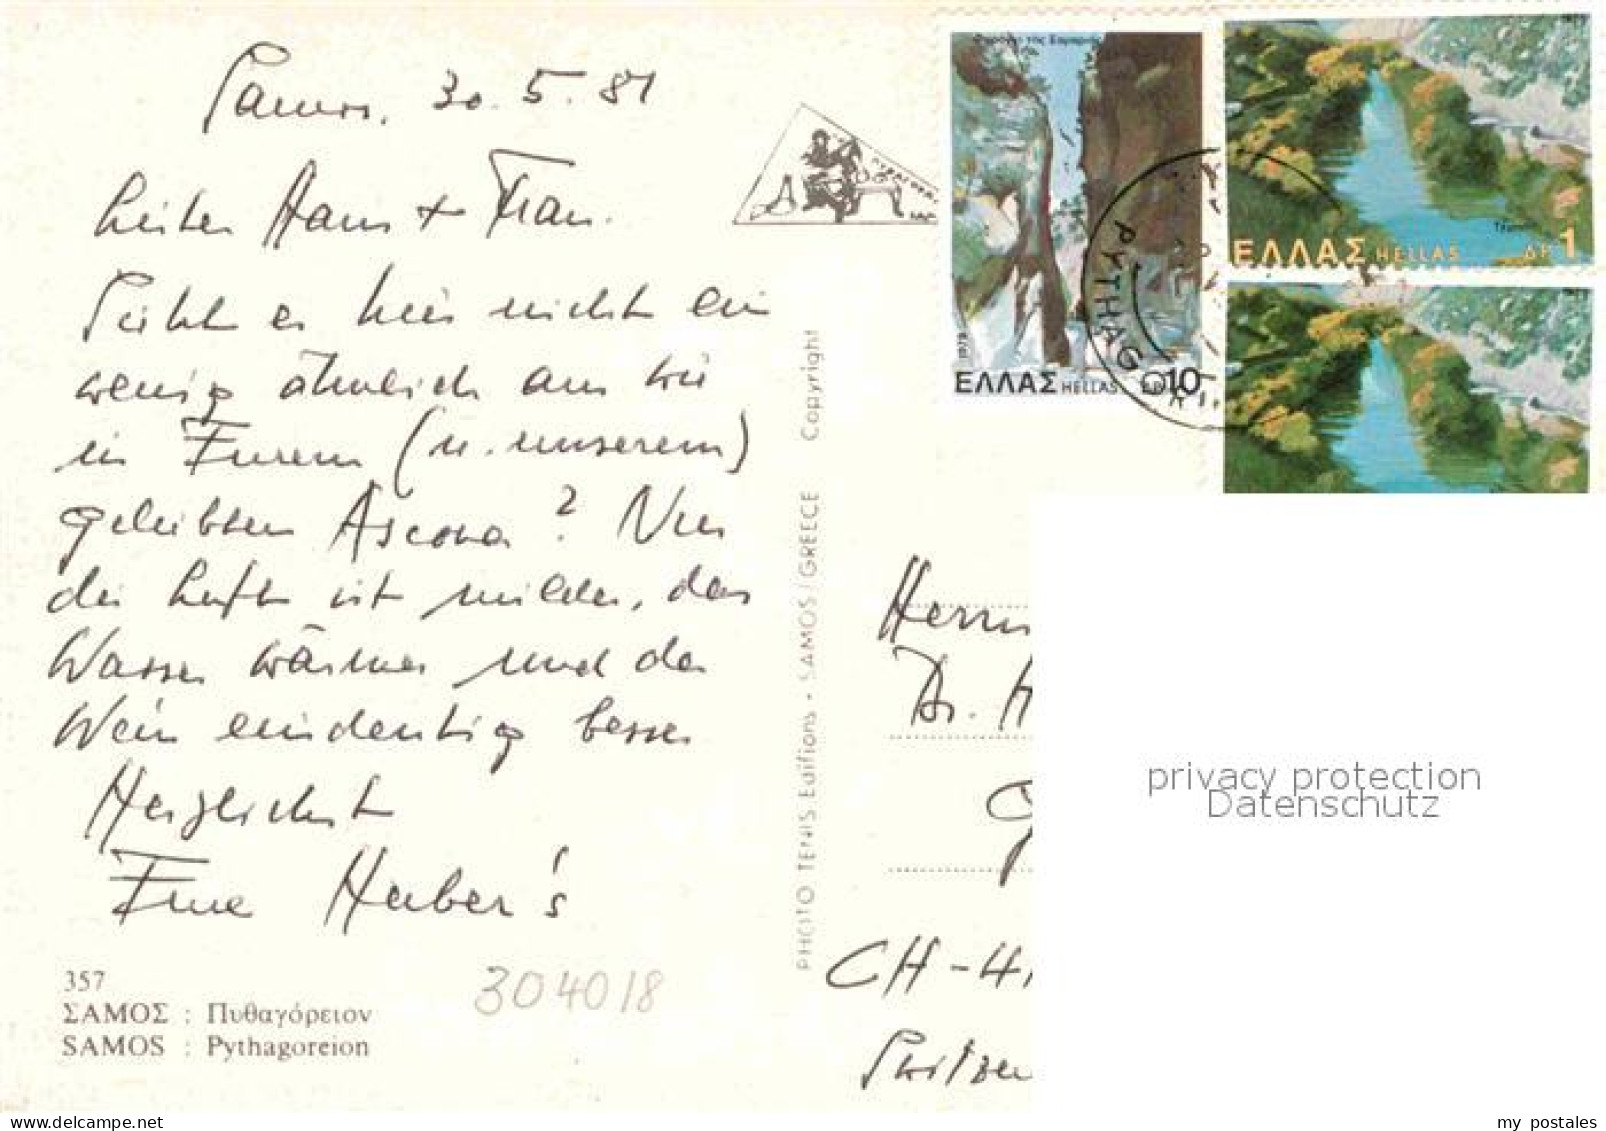 Samos, 30.5.81
Lieber Hans + Frau.
Sieht es hier nicht ein
wenig ähnlich aus wie
in Eurem (u. unserem)
geliebten Ascona? Nur
die Luft ist milder, das
Wasser wärmer und der
Wein eindeutig besser
Herzlichst
Eure Huber's
357
ΣΑΜΟΣ : Πυθαγόρειον
SAMOS : Pythagoreion
304018
PHOTO TENIS Editions · SAMOS / GREECE Copyright
ΕΛΛΑΣ HELLAS ΔΡ. 10
ΕΛΛΑΣ HELLAS ΔΡ. 1
PYTHAGO
Herrn
Dr. H
CH-41
Switzer
privacy protection
Datenschutz
my postales